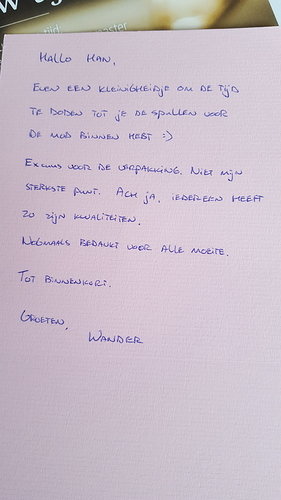 Hallo Han,
Even een kleinigheidje om de tijd
te doden tot je de spullen voor
de mod binnen hebt :)
Excuus voor de verpakking. Niet mijn
sterkste punt. Ach ja, iedereen heeft
zo zijn kwaliteiten.
Nogmaals bedankt voor alle moeite.
Tot binnenkort.
Groeten,
Wander